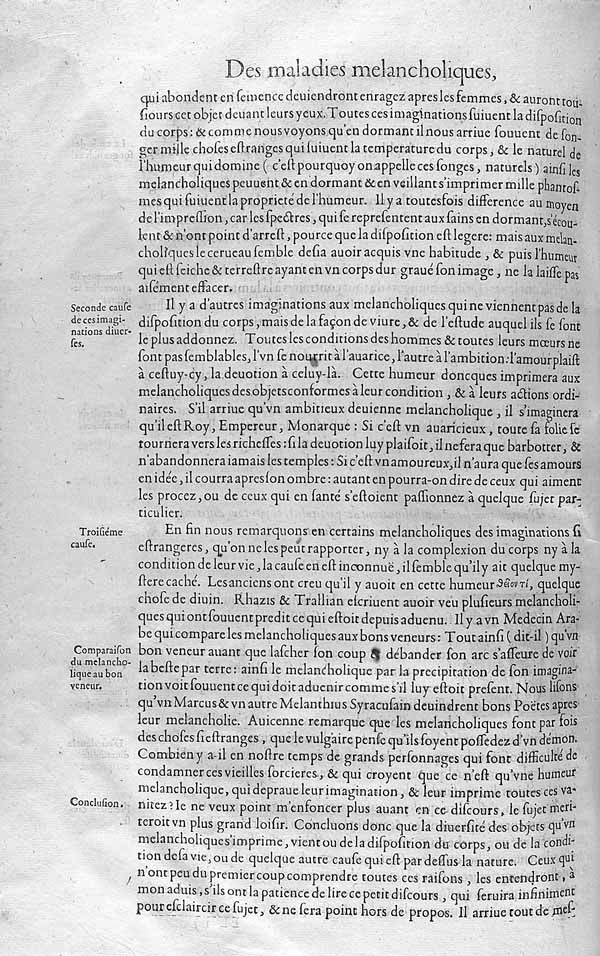 Des maladies melancholiques,
qui abondent en ſemence deuiendront enragez apres les femmes, & auront tou-
ſiours cet objet deuant leurs yeux. Toutes ces imaginations ſuiuent la diſpoſition
du corps: & comme nous voyons qu'en dormant il nous arriue ſouuent de ſon-
ger mille choſes eſtranges qui ſuiuent la temperature du corps, & le naturel de
l'humeur qui domine ( c'eſt pourquoy on appelle ces ſonges, naturels ) ainſi les
melancholiques peuuent & en dormant & en veillant s'imprimer mille phantoſ-
mes qui ſuiuent la proprieté de l'humeur. Il y a toutesfois difference au moyen
de l'impreſſion, car les ſpectres, qui ſe repreſentent aux ſains en dormant, s'écou-
lent & n'ont point d'arreſt, pource que la diſpoſition eſt legere: mais aux melan-
choliques le cerueau ſemble deſia auoir acquis vne habitude, & puis l'humeur
qui eſt ſeiche & terreſtre ayant en vn corps dur graué ſon image, ne la laiſſe pas
aiſément effacer.
Seconde cauſe
de ces imagi-
nations diuer-
ſes.
Il y a d'autres imaginations aux melancholiques qui ne viennent pas de la
diſpoſition du corps, mais de la façon de viure, & de l'eſtude auquel ils ſe ſont
le plus addonnez. Toutes les conditions des hommes & toutes leurs mœurs ne
ſont pas ſemblables, l'vn ſe nourrit à l'auarice, l'autre à l'ambition: l'amour plaiſt
à ceſtuy-cy, la deuotion à celuy-là. Cette humeur doncques imprimera aux
melancholiques des objets conformes à leur condition, & à leurs actions ordi-
naires. S'il arriue qu'vn ambitieux deuienne melancholique, il s'imaginera
qu'il eſt Roy, Empereur, Monarque : Si c'eſt vn auaricieux, toute ſa folie ſe
tournera vers les richeſſes : ſi la deuotion luy plaiſoit, il ne fera que barbotter, &
n'abandonnera iamais les temples : Si c'eſt vn amoureux, il n'aura que ſes amours
en idée, il courra apres ſon ombre: autant en pourra-on dire de ceux qui aiment
les procez, ou de ceux qui en ſanté s'eſtoient paſſionnez à quelque ſujet par-
ticulier.
Troiſiéme
cauſe.
En fin nous remarquons en certains melancholiques des imaginations ſi
eſtrangeres, qu'on ne les peut rapporter, ny à la complexion du corps ny à la
condition de leur vie, la cauſe en eſt inconnuë, il ſemble qu'il y ait quelque my-
ſtere caché. Les anciens ont creu qu'il y auoit en cette humeur quelque
choſe de diuin. Rhazis & Trallian eſcriuent auoir veu pluſieurs melancholi-
ques qui ont ſouuent predit ce qui eſtoit depuis aduenu. Il y a vn Medecin Ara-
be qui compare les melancholiques aux bons veneurs: Tout ainſi ( dit-il ) qu'vn
Comparaiſon
du melancho-
lique au bon
veneur.
bon veneur auant que laſcher ſon coup & débander ſon arc s'aſſeure de voir
la beſte par terre: ainſi le melancholique par la precipitation de ſon imagina-
tion voit ſouuent ce qui doit aduenir comme s'il luy eſtoit preſent. Nous liſons
qu'vn Marcus & vn autre Melanthius Syracuſain deuindrent bons Poëtes apres
leur melancholie. Auicenne remarque que les melancholiques font par fois
des choſes ſi eſtranges, que le vulgaire penſe qu'ils ſoyent poſſedez d'vn démon.
Combien y a-il en noſtre temps de grands perſonnages qui font difficulté de
condamner ces vieilles ſorcieres, & qui croyent que ce n'eſt qu'vne humeur
melancholique, qui depraue leur imagination, & leur imprime toutes ces va-
Concluſion.
nitez? Ie ne veux point m'enfoncer plus auant en ce diſcours, le ſujet meri-
teroit vn plus grand loiſir. Concluons donc que la diuerſité des objets qu'vn
melancholique s'imprime, vient ou de la diſpoſition du corps, ou de la condi-
tion de ſa vie, ou de quelque autre cauſe qui eſt par deſſus la nature. Ceux qui
n'ont peu du premier coup comprendre toutes ces raiſons, les entendront, à
mon aduis, s'ils ont la patience de lire ce petit diſcours, qui ſeruira infiniment
pour eſclaircir ce ſujet, & ne ſera point hors de propos. Il arriue tout de meſ-